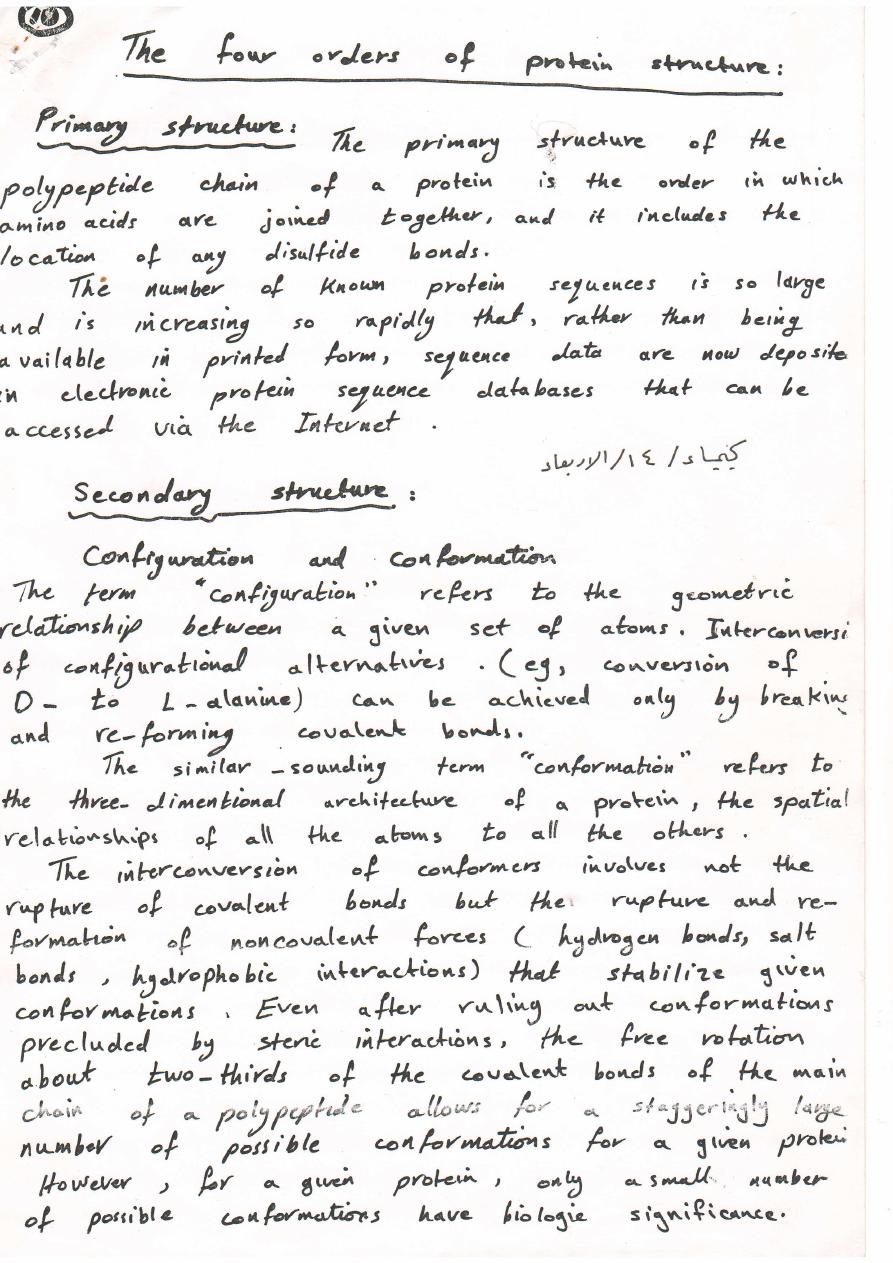 The four orders of protein structure:
Primary structure: The primary structure of the
polypeptide chain of a protein is the order in which
amino acids are joined together, and it includes the
location of any disulfide bonds.
The number of Known protein sequences is so large
and is increasing so rapidly that, rather than being
available in printed form, sequence data are now deposite
in electronic protein sequence databases that can be
accessed via the Internet .
كيمياء / ١٤ / الاربعاء
Secondary structure :
Configuration and conformation
The term "configuration" refers to the geometric
relationship between a given set of atoms. Interconversi
of configurational alternatives . (eg, conversion of
D- to L-alanine) can be achieved only by breaking
and re-forming covalent bonds.
The similar -sounding term "conformation" refers to
the three-dimentional architecture of a protein, the spatial
relationships of all the atoms to all the others .
The interconversion of conformers involves not the
rupture of covalent bonds but the rupture and re-
formation of noncovalent forces ( hydrogen bonds, salt
bonds , hydrophobic interactions) that stabilize given
conformations . Even after ruling out conformations
precluded by steric interactions, the free rotation
about two-thirds of the covalent bonds of the main
chain of a polypeptide allows for a staggeringly large
number of possible conformations for a given protein
However , for a given protein , only a small number
of possible conformations have biologic significance.